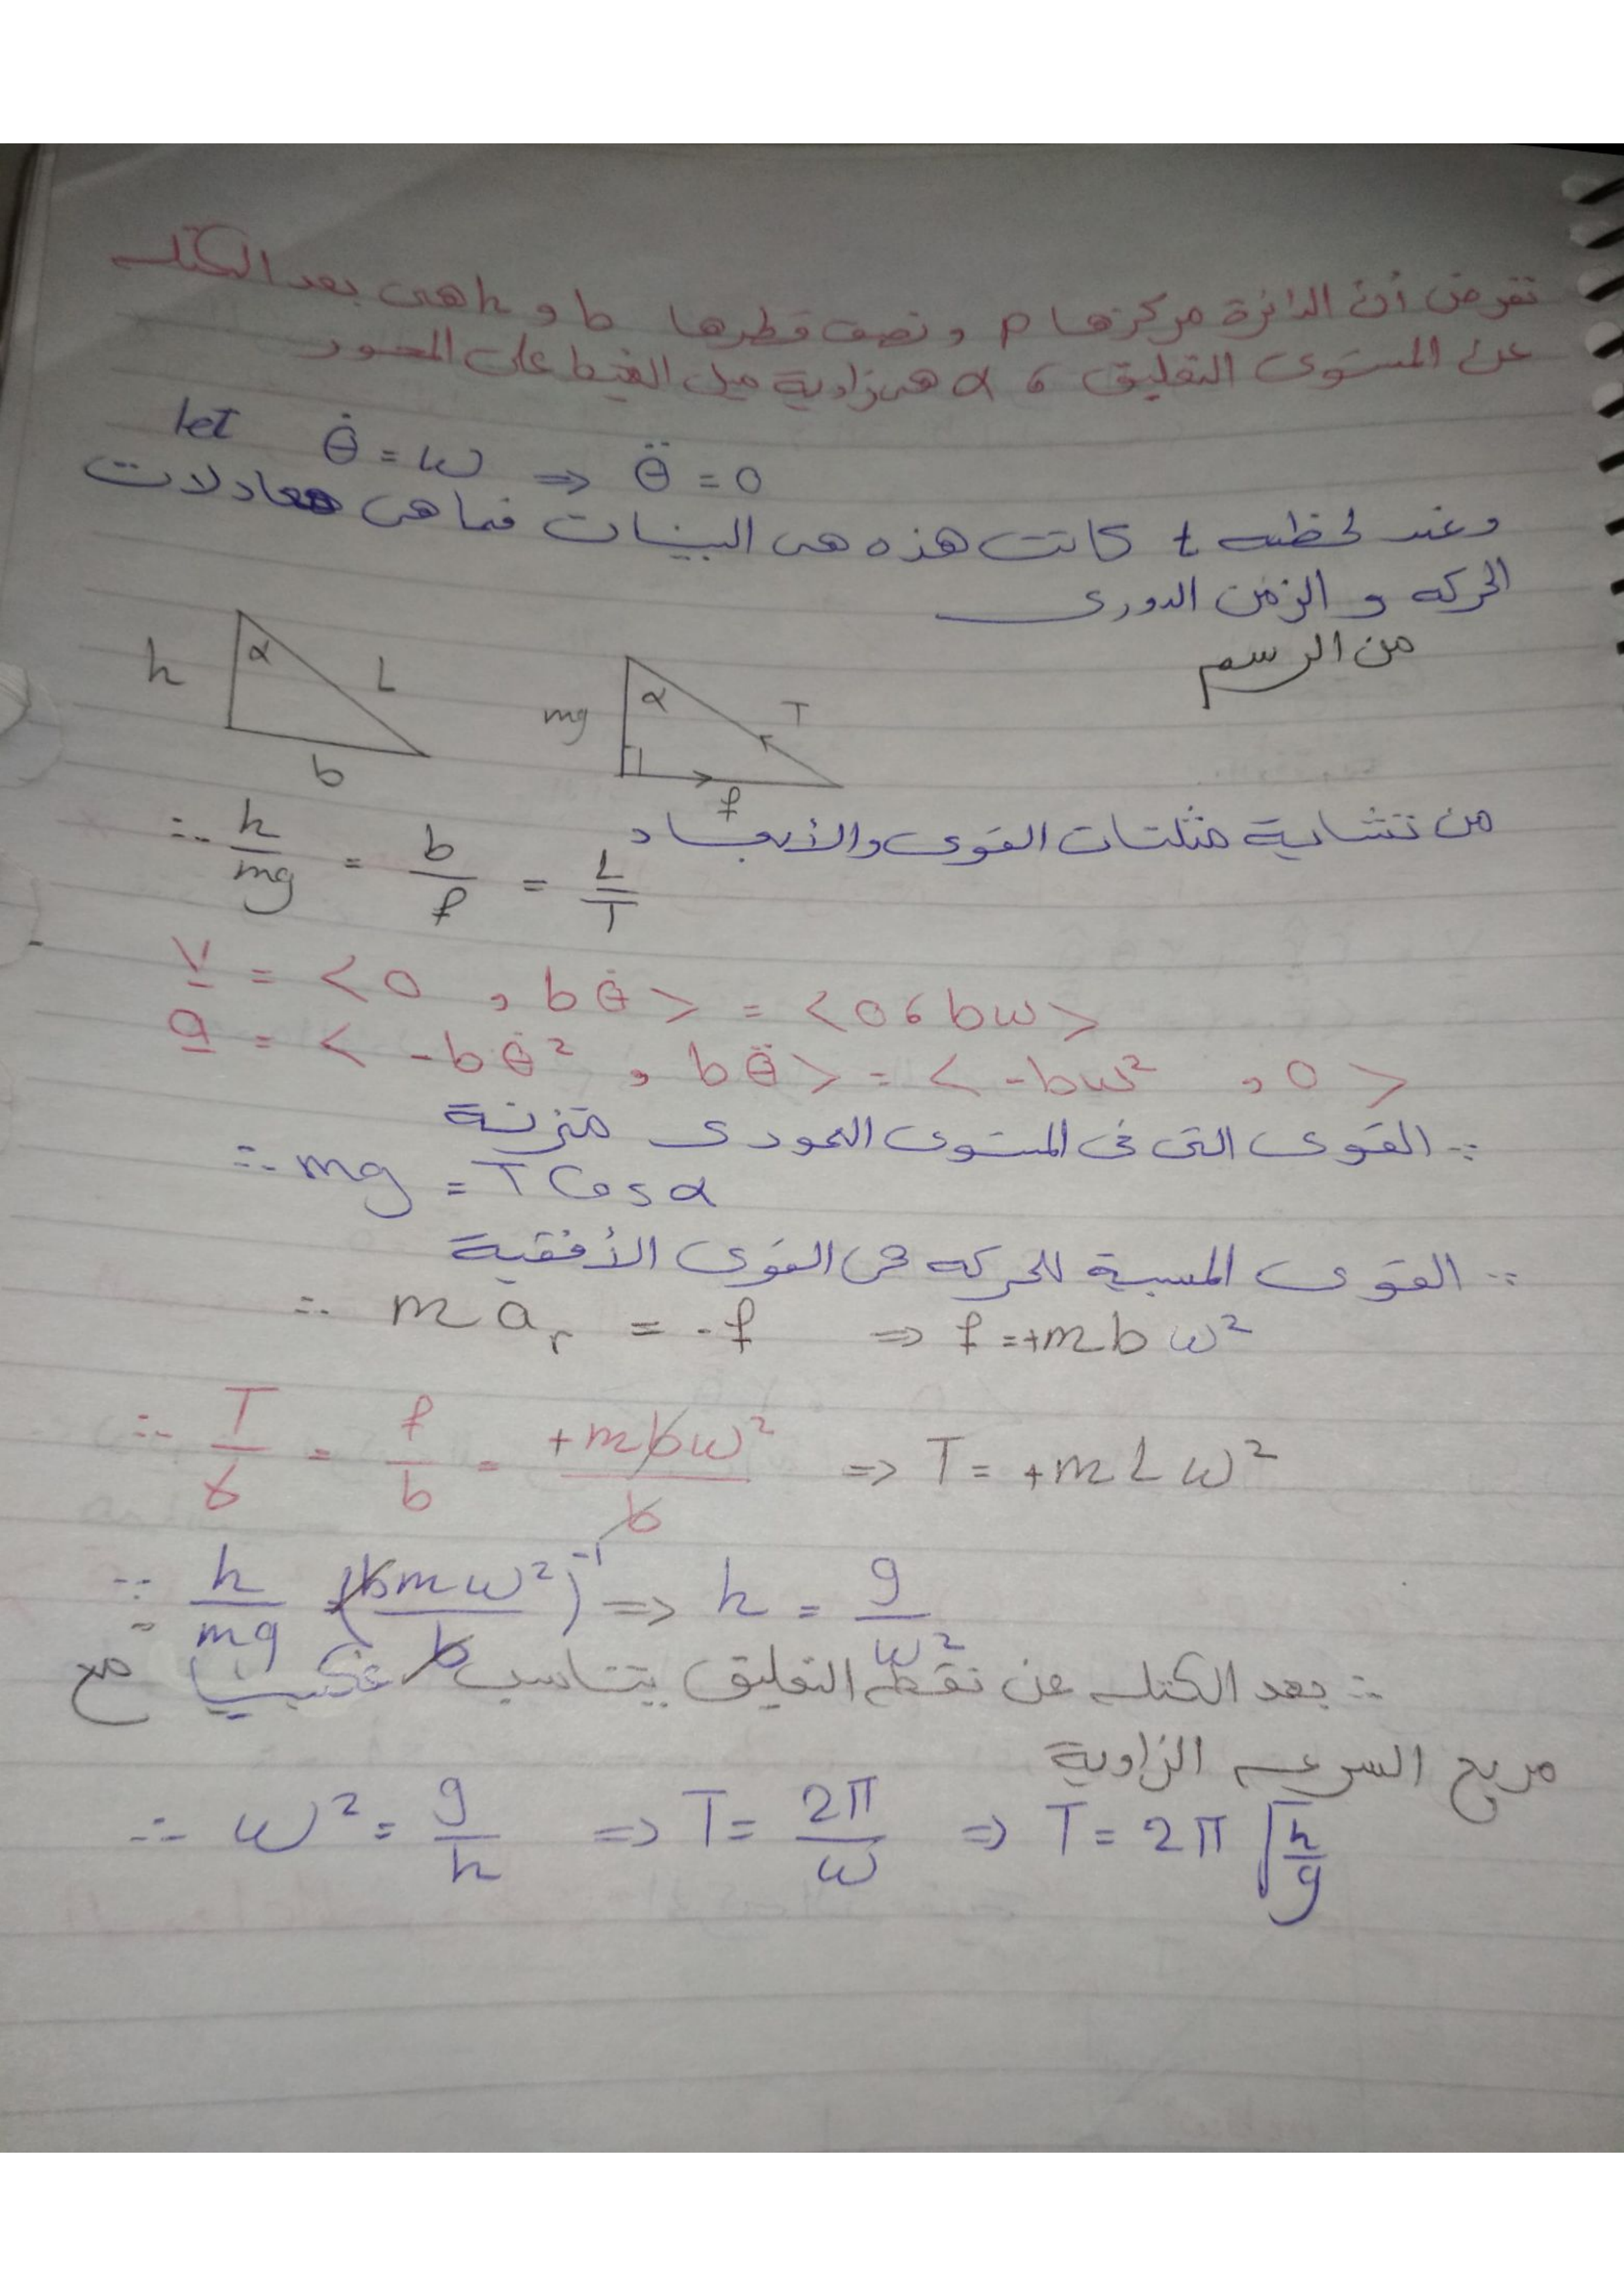 نفرض أن الدائرة مركزها P ونصف قطرها b و h هى بعد الكتلة
عن المستوى التعليق ، α هى زاوية ميل الخيط على المحور
let θ̇ = ω ⇒ θ̈ = 0
وعند لحظة t كانت هذه هى البيانات فما هى معادلات
الحركه و الزمن الدورى
من الرسم
h α L b
mg α T f
من تشابة مثلثات القوى والأبعاد
∴ h/mg = b/f = L/T
v = <0 , bθ̇> = <0 , bω>
a = < -bθ̇² , bθ̈> = < -bω² , 0 >
∵ القوى التى فى المستوى العمودى متزنة
∴ mg = T Cos α
∵ القوى المسببة للحركه هى القوى الأفقية
∴ m aᵣ = -f ⇒ f = +mbω²
∴ T/ = f/b = +mbω²/b ⇒ T = +mLω²
∴ h/mg = (bmω²/b)⁻¹ ⇒ h = g/ω²
∴ بعد الكتله عن نقطه التعليق يتناسب عكسيا مع
مربع السرعه الزاوية
∴ ω² = g/h ⇒ T = 2π/ω ⇒ T = 2π √(h/g)